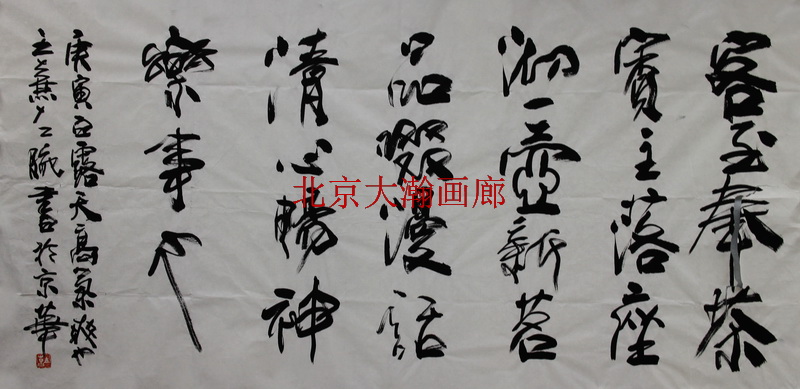 客至奉茶
賓主落座
沏一壺新茗
品啜漫話
清心暢神
樂事也
庚寅白露天高氣爽也
書於京華
北京大瀚画廊